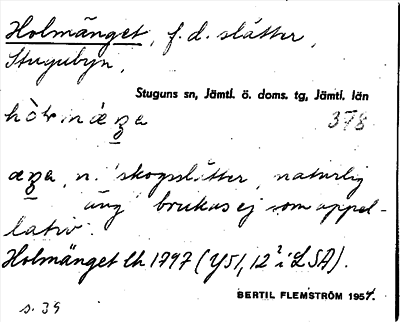 Holmänget, f. d. slåtter,
Stugubyn,
Stuguns sn, Jämtl. ö. doms. tg, Jämtl. län
378
n. 'skogsslåtter, naturlig
äng' brukas ej som appel-
lativ.
Holmänget lh 1797 (Y51, 12² i LSA).
BERTIL FLEMSTRÖM 1954.
s. 39